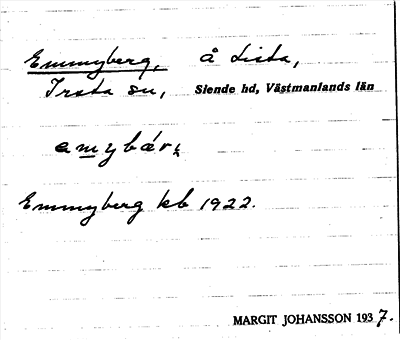 Emmyberg, å Lista,
Irsta sn, Siende hd, Västmanlands län
emybærj
Emmyberg kb 1922.
MARGIT JOHANSSON 1937.